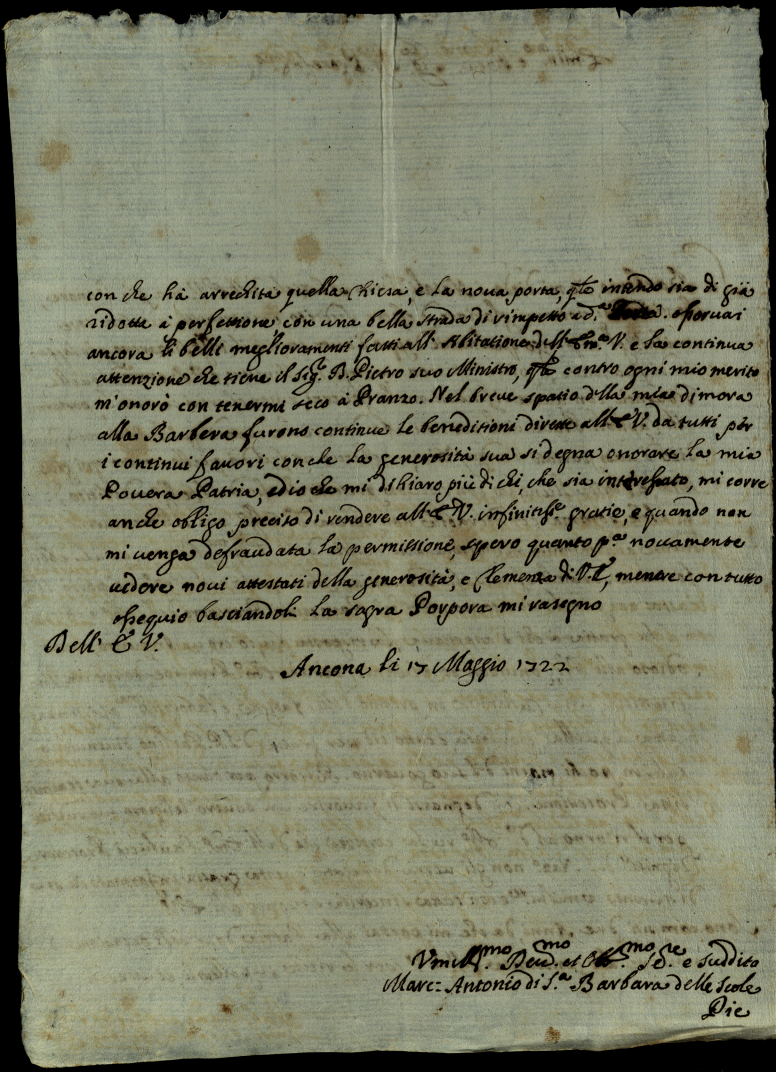 con che hà arrechita quella Chiesa, e la nova porta, qle intendo sia di già
ridotta à perfettione con una bella strada di rimpetto ad.a osservai
ancora li belli meglioramenti fatti all' Abitatione dell' Em.a V. e la continua
attenzione che tiene il Sig.r D. Pietro suo Ministro, qle contro ogni mio merito
m'onorò con tenermi seco à Pranzo. Nel breve spatio della mia dimora
alla Barbera furono continue le beneditioni dirette all' E V. da tutti per
i continui favori con che la generosità sua si degna onorare la mia
Povera Patria, ed io che mi dichiaro più di chi, che sia interessato, mi corre
anche obligo preciso di rendere all' E V. infinitiss.e gratie, e quando non
mi venga defraudata la permissione, spero quanto p.a novamente
vedere novi attestati della generosità, e Clemenza di V. E, mentre con tutto
ossequio basciandoli la sagra Porpora mi rasegno
Dell' E V.
Ancona li 17 Maggio 1722
Vmiliss.mo Deu.mo et Obb.mo Se.re e Suddito
Marc= Antonio di S.a Barbara delle Scole
Pie